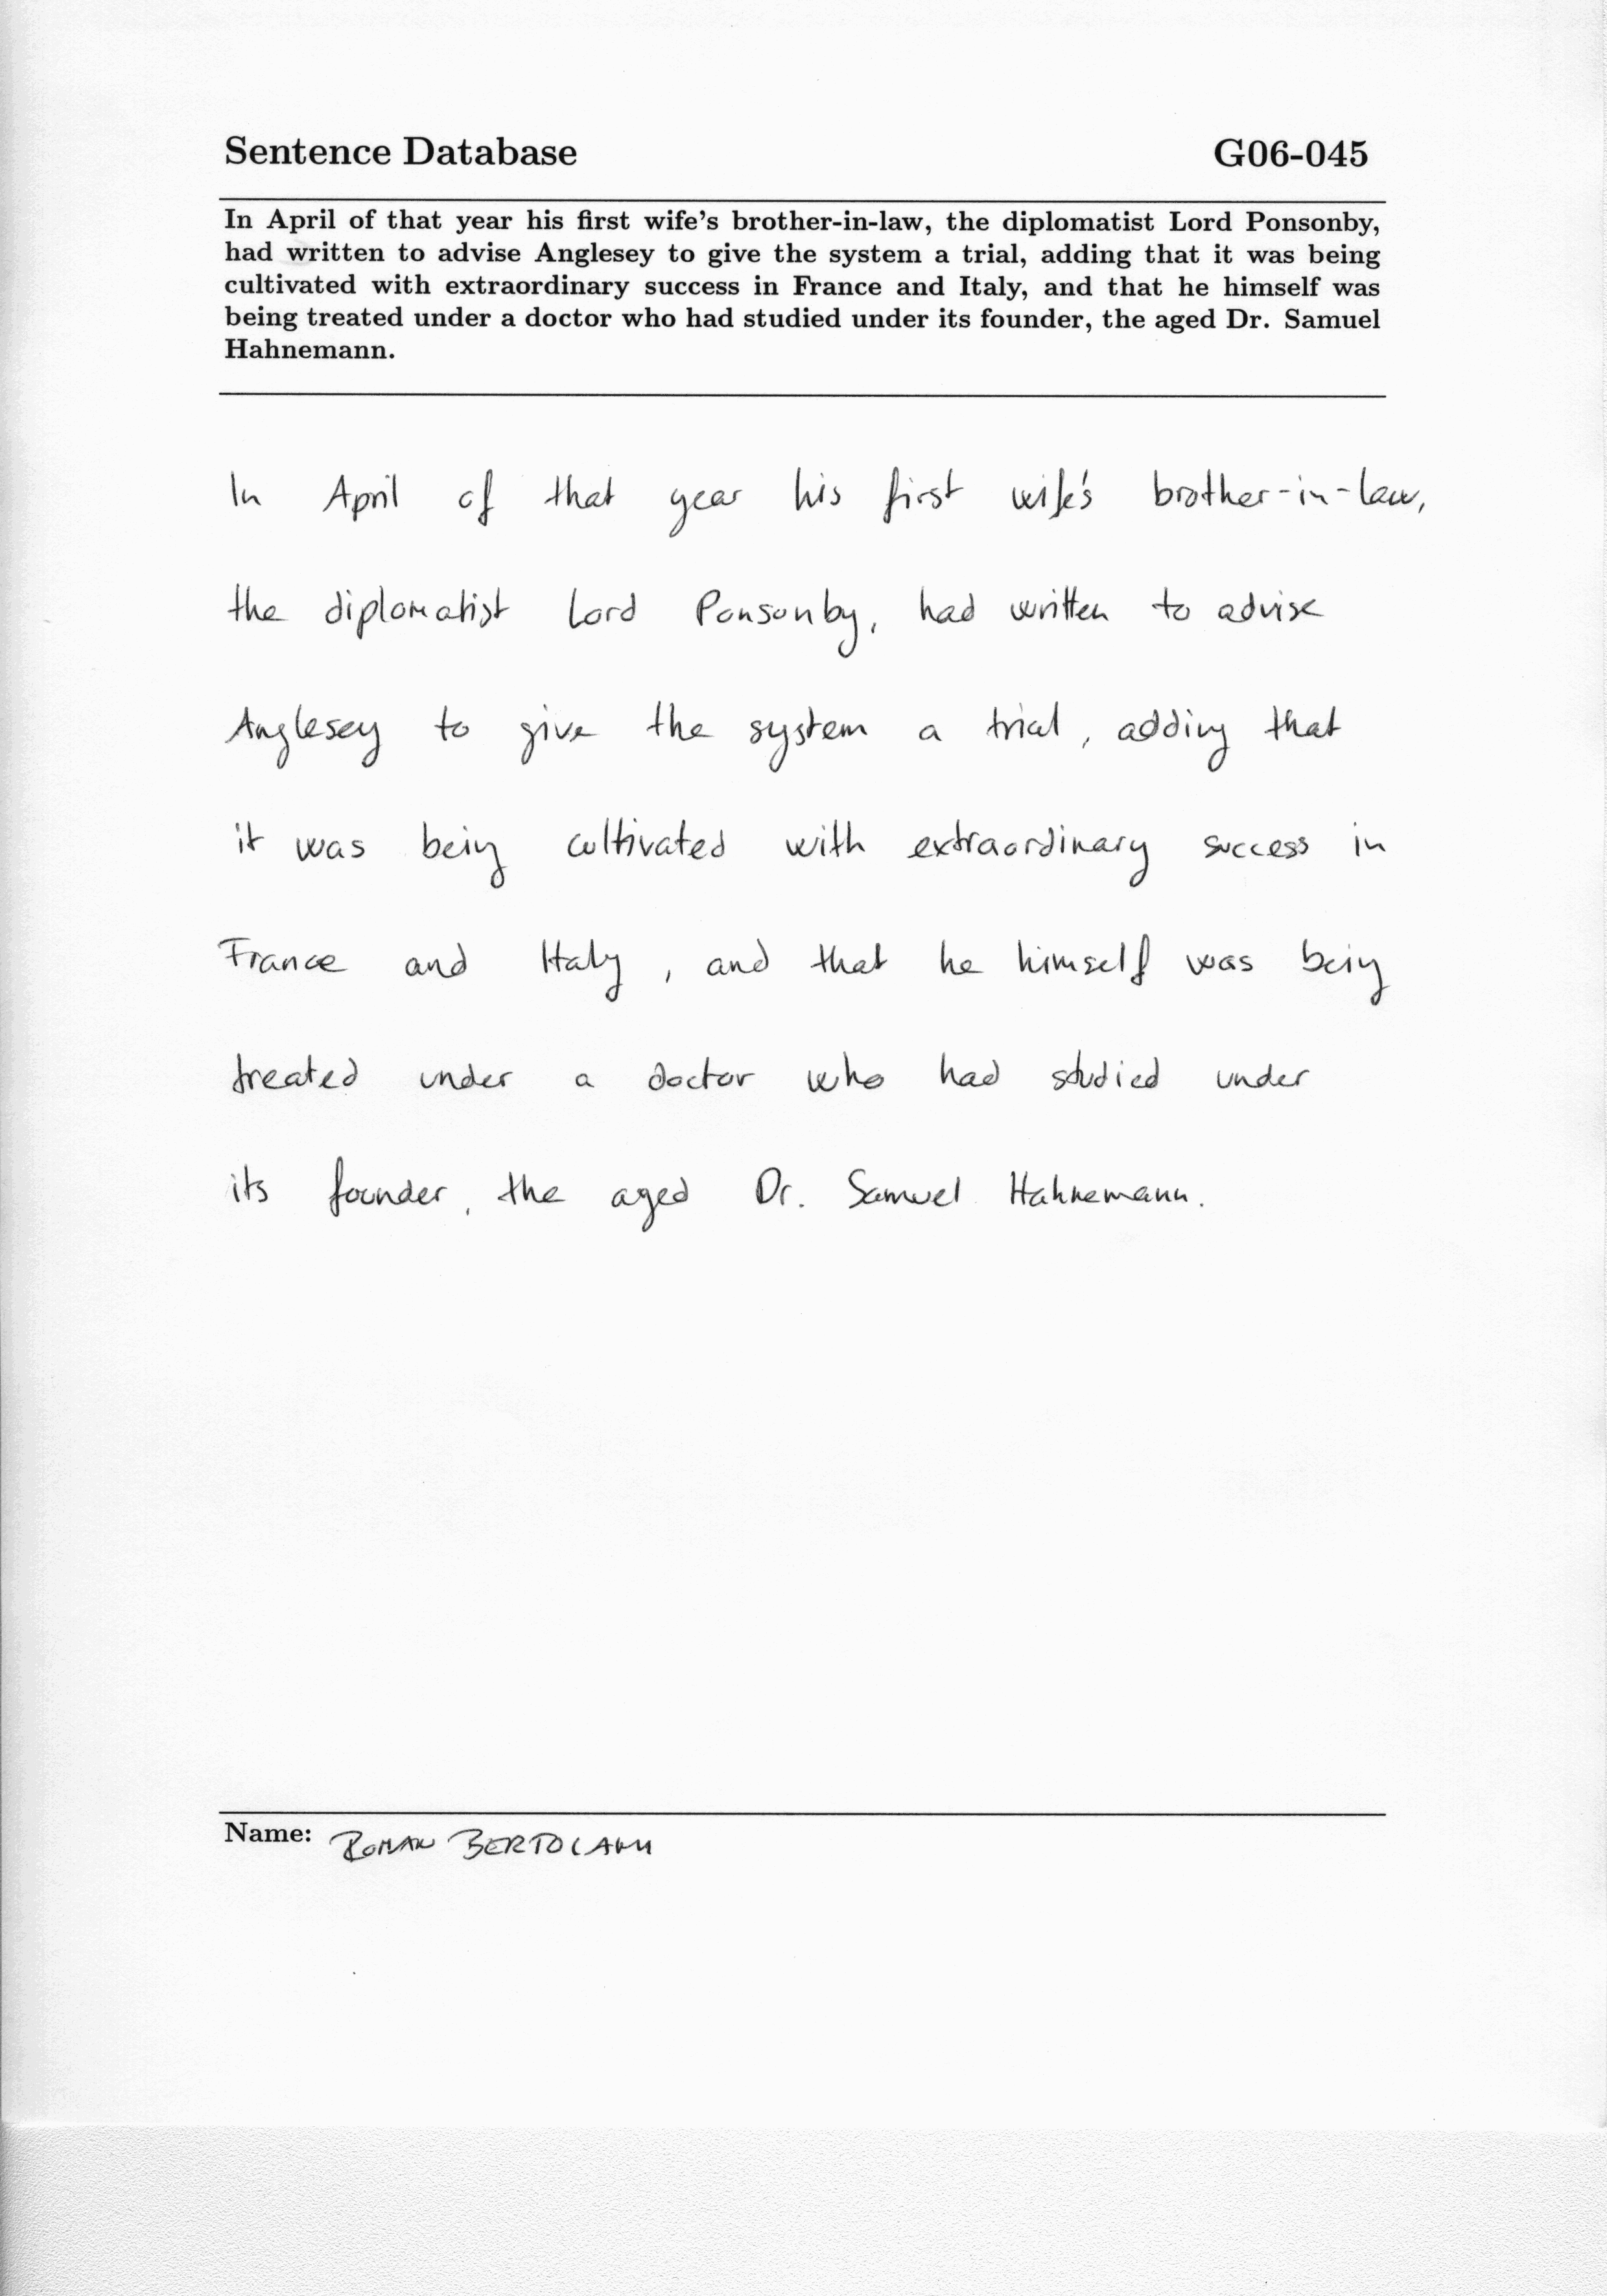 Sentence Database G06-045
In April of that year his first wife's brother-in-law, the diplomatist Lord Ponsonby,
had written to advise Anglesey to give the system a trial, adding that it was being
cultivated with extraordinary success in France and Italy, and that he himself was
being treated under a doctor who had studied under its founder, the aged Dr. Samuel
Hahnemann.
In April of that year his first wife's brother-in-law,
the diplomatist Lord Ponsonby, had written to advise
Anglesey to give the system a trial, adding that
it was being cultivated with extraordinary success in
France and Italy, and that he himself was being
treated under a doctor who had studied under
its founder, the aged Dr. Samuel Hahnemann.
Name: ROMAN BERTOLAMI